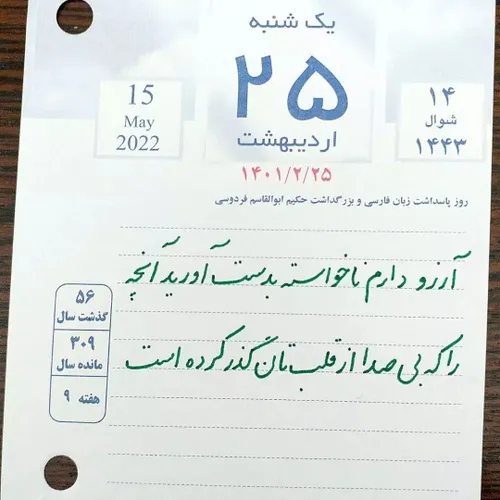 یک شنبه
۲۵
اردیبهشت
۱۴۰۱/۲/۲۵
۱۴
شوال
۱۴۴۳
15
May
2022
روز پاسداشت زبان فارسی و بزرگداشت حکیم ابوالقاسم فردوسی
آرزو دارم ناخواسته بدست آورید آنچه
را که بی صدا از قلب تان گذر کرده است
۵۶
گذشت سال
۳۰۹
مانده سال
هفته ۹